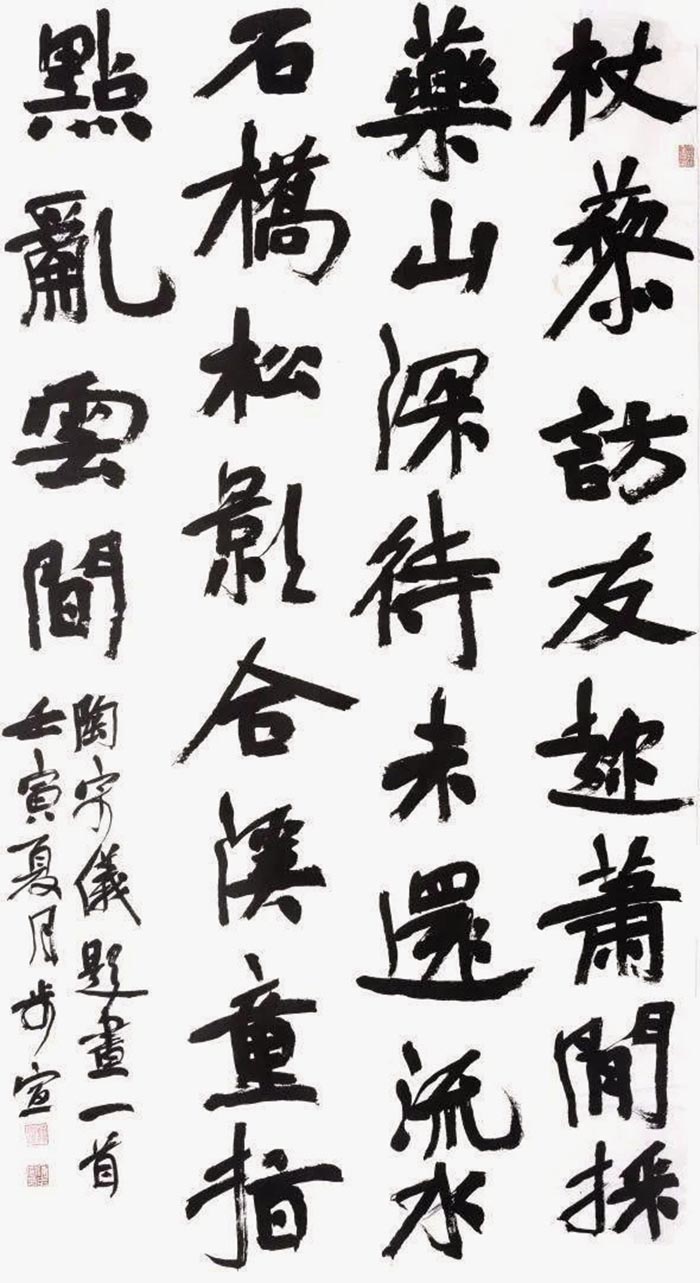 杖藜訪友趂蕭閒採
藥山深待未還流水
石橋松影合溪童指
點亂雲間
陶宗儀題畫一首
壬寅夏月步宣